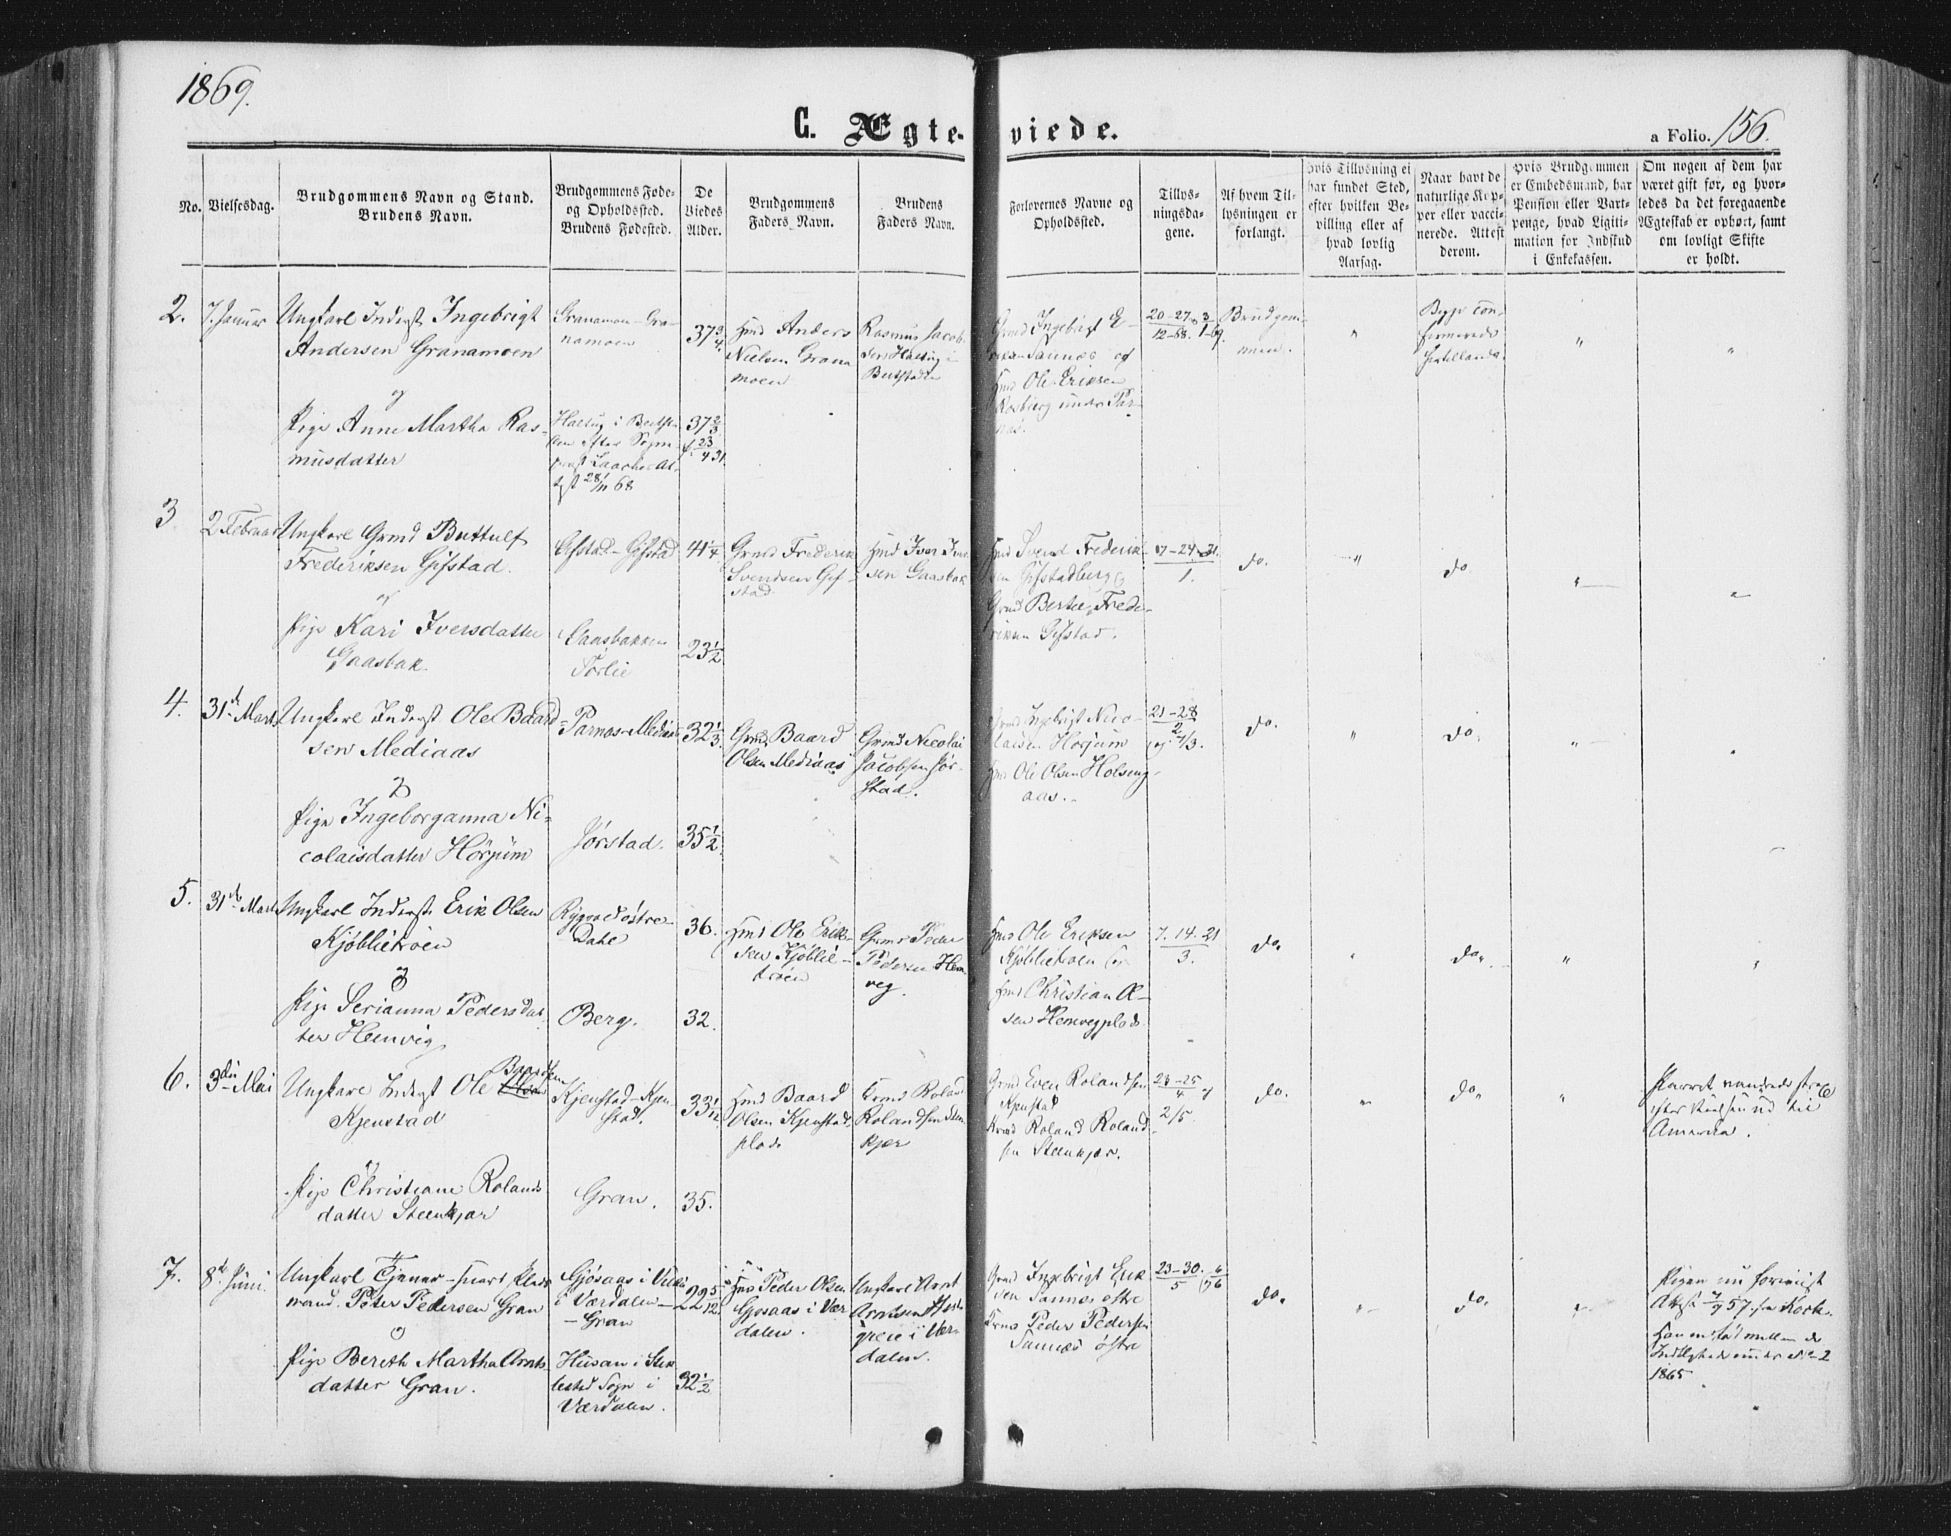 1869.
C. Ægteviede.
a Folio. 156.
No.
Vielsesdag.
Brudgommens Navn og Stand.
Brudens Navn.
Brudgommens Føde-
og Opholdssted.
Brudens Fødested.
De
Viedes
Alder.
Brudgommens
Faders Navn.
Brudens
Faders Navn.
Forlovernes Navne og
Opholdssted.
Tillys-
ningsda-
gene.
Af hvem Til-
lysningen er
forlangt.
Hvis Tillysning ei
har fundet Sted,
efter hvilken Be-
villing eller af
hvad lovlig
Aarsag.
Naar havt de
naturlige Kop-
per eller vacci-
nerede. Attest
derom.
Hvis Brudgommen
er Embedsmand, har
Pension eller Vart-
penge, hvad Ligiti-
mation for Indskud
i Enkekassen.
Om nogen af dem har
været gift før, og hvor-
ledes da det foregaaende
Ægteskab er ophørt, samt
om lovligt Skifte
er holdt.
2.
7. Januar
Ungkarl Inderst Ingebrigt
Andersen Granamoen
og
Pige Anne Martha Ras-
musdatter
Granamoen-Gra-
namoen
37 3/4
37 2/3
f. 23/4 31
Hmd Anders
Nielsen Grana
moen
Rasmus Jacob-
sen Halsug i
Beitstaden
Gmd Ingebrigt E-
Sannæs og
Hmd Ole Eriksen
20-27 3
12-68. 1-69
Brudgom-
men.
"
Begge con-
firmerede
"
"
3
2 Februar
Ungkarl Grmd Buttulf
Frederiksen Gifstad.
og
Pige Kari Iversdatter
Gaasbak.
Gifstad-Gifstad
Gaasbakken
Sørlie
41 1/4
23 1/2
Grmd Frederik
Svendsen Gif-
stad
Hmd Iver Iver
sen Gaasbak
Hmd Svend Frederik-
sen Gifstadberg og
Grmd Frede-
riksen Gifstad.
17-24-31.
1.
do.
"
do
"
"
4.
31te Marts
Ungkarl Inderst Ole Baard-
sen Mediaas
og
Pige Ingeborganna Ni-
colaisdatter Hörjüm
Parnas-Mediaas
Jørstad.
32 1/3
35 1/2
Grmd Baard
Olsen Mediaas
Grmd Nicolai
Jacobsen Jør-
stad.
Grmd Ingebrigt Nico-
laisen Horjum
Hmd Ole Olsen Holseng-
aas.
21-28
2
og 7/3.
do.
"
do.
"
"
5.
31te Marts
Ungkarl Inderst Erik Olsen
Kjøblietröen
og
Pige Serianna Pedersdat-
ter Hemvig
Rygaad østre-
Dahl
Berg.
36.
32.
Hmd Ole Erik-
sen Kjöblie-
tröen
Grmd Peder
Pedersen Hem-
veg.
Hmd Ole Eriksen
Kjöblietröen og
Hmd Christian Ol-
sen Hemvegplads
7. 14. 21
3.
do.
"
do.
"
"
6.
3die Mai
Baardsen
Ungkarl Inderst Ole
Kjenstad
og
Pige Christiane Rolands
datter Steenkjær
Kjenstad-Kjen
stad.
Gran.
33 1/12
35.
Hmd Baard
Olsen Kjenstad-
plads
Grmd Roland
Rolandsen Sten
kjær
Grmd Even Rolandsen
Kjenstad
Grmd Roland Roland
sen Steenkjær.
23-25
4 og
2/5.
do.
"
do.
"
Parret vandrede strax
efter Vielsen ud til
Amerika.
7.
8de Juni.
Ungkarl Tjener-snart Plads
mand. Peter Pedersen Gran
og
Pige Bereth Martha Arnts
datter Gran.
Gjösaas i Vukü
i Værdalen-
-Gran
Husan i Stik
lestad Sogn i
Værdalen.
22 5/12
32 1/2
Hmd Peder Olsen
Gjösaas i Vær
dalen.
Ungkarl Arnt
Arntsen
i Vær-
dalen.
Grmd Ingebrigt Erik
sen Sannæs østre
Grmd Peder Pedersen
Sannæs østre
23-30.
5 og 6/6
do.
"
do.
"
1865